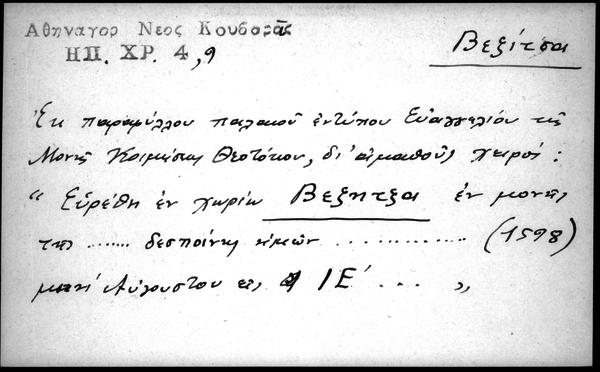 Αθηναγορ Νεος Κουβαρᾶς
ΗΠ. ΧΡ. 4,9
Βεξίτσα
Ἐκ παραφύλλου παλαιοῦ ἐντύπου Εὐαγγελίου τῆς
Μονῆς Κοιμήσεως Θεοτόκου, δι' ἀμαθοῦς χειρός:
"Εὑρέθη ἐν χωρίῳ Βεξητξα ἐν μονῆς
της ....... δεσποίνης ἡμῶν .............. (1598)
μηνί Αὐγούστου εἰς ΙΕ' ... "